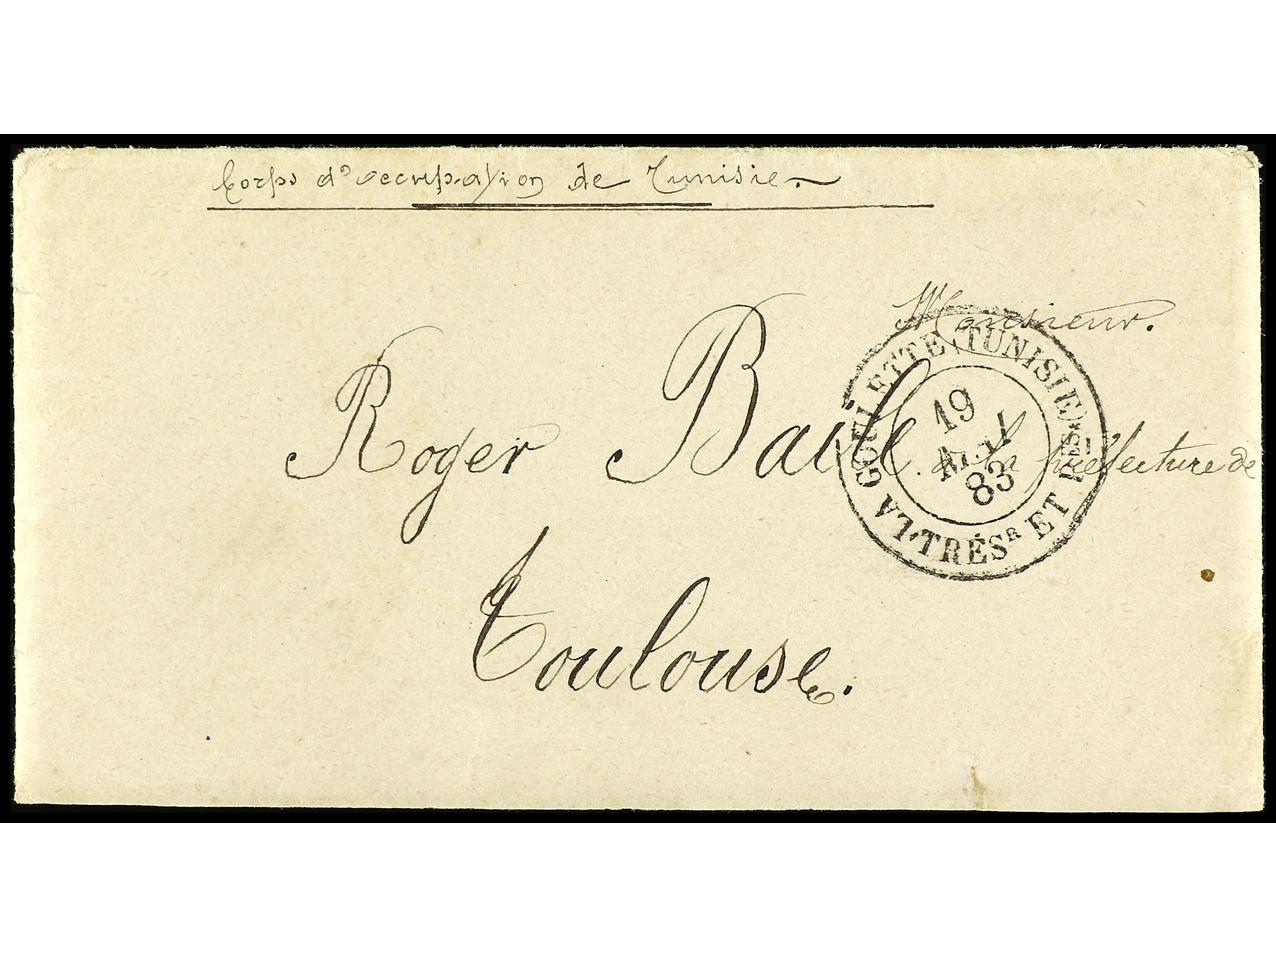 Corps d'occupation de Tunisie.
Monsieur.
Roger Baile. à la préfecture de
Toulouse.
LA GOULETTE (TUNISIE)
19
83
TRÉSR ET PES